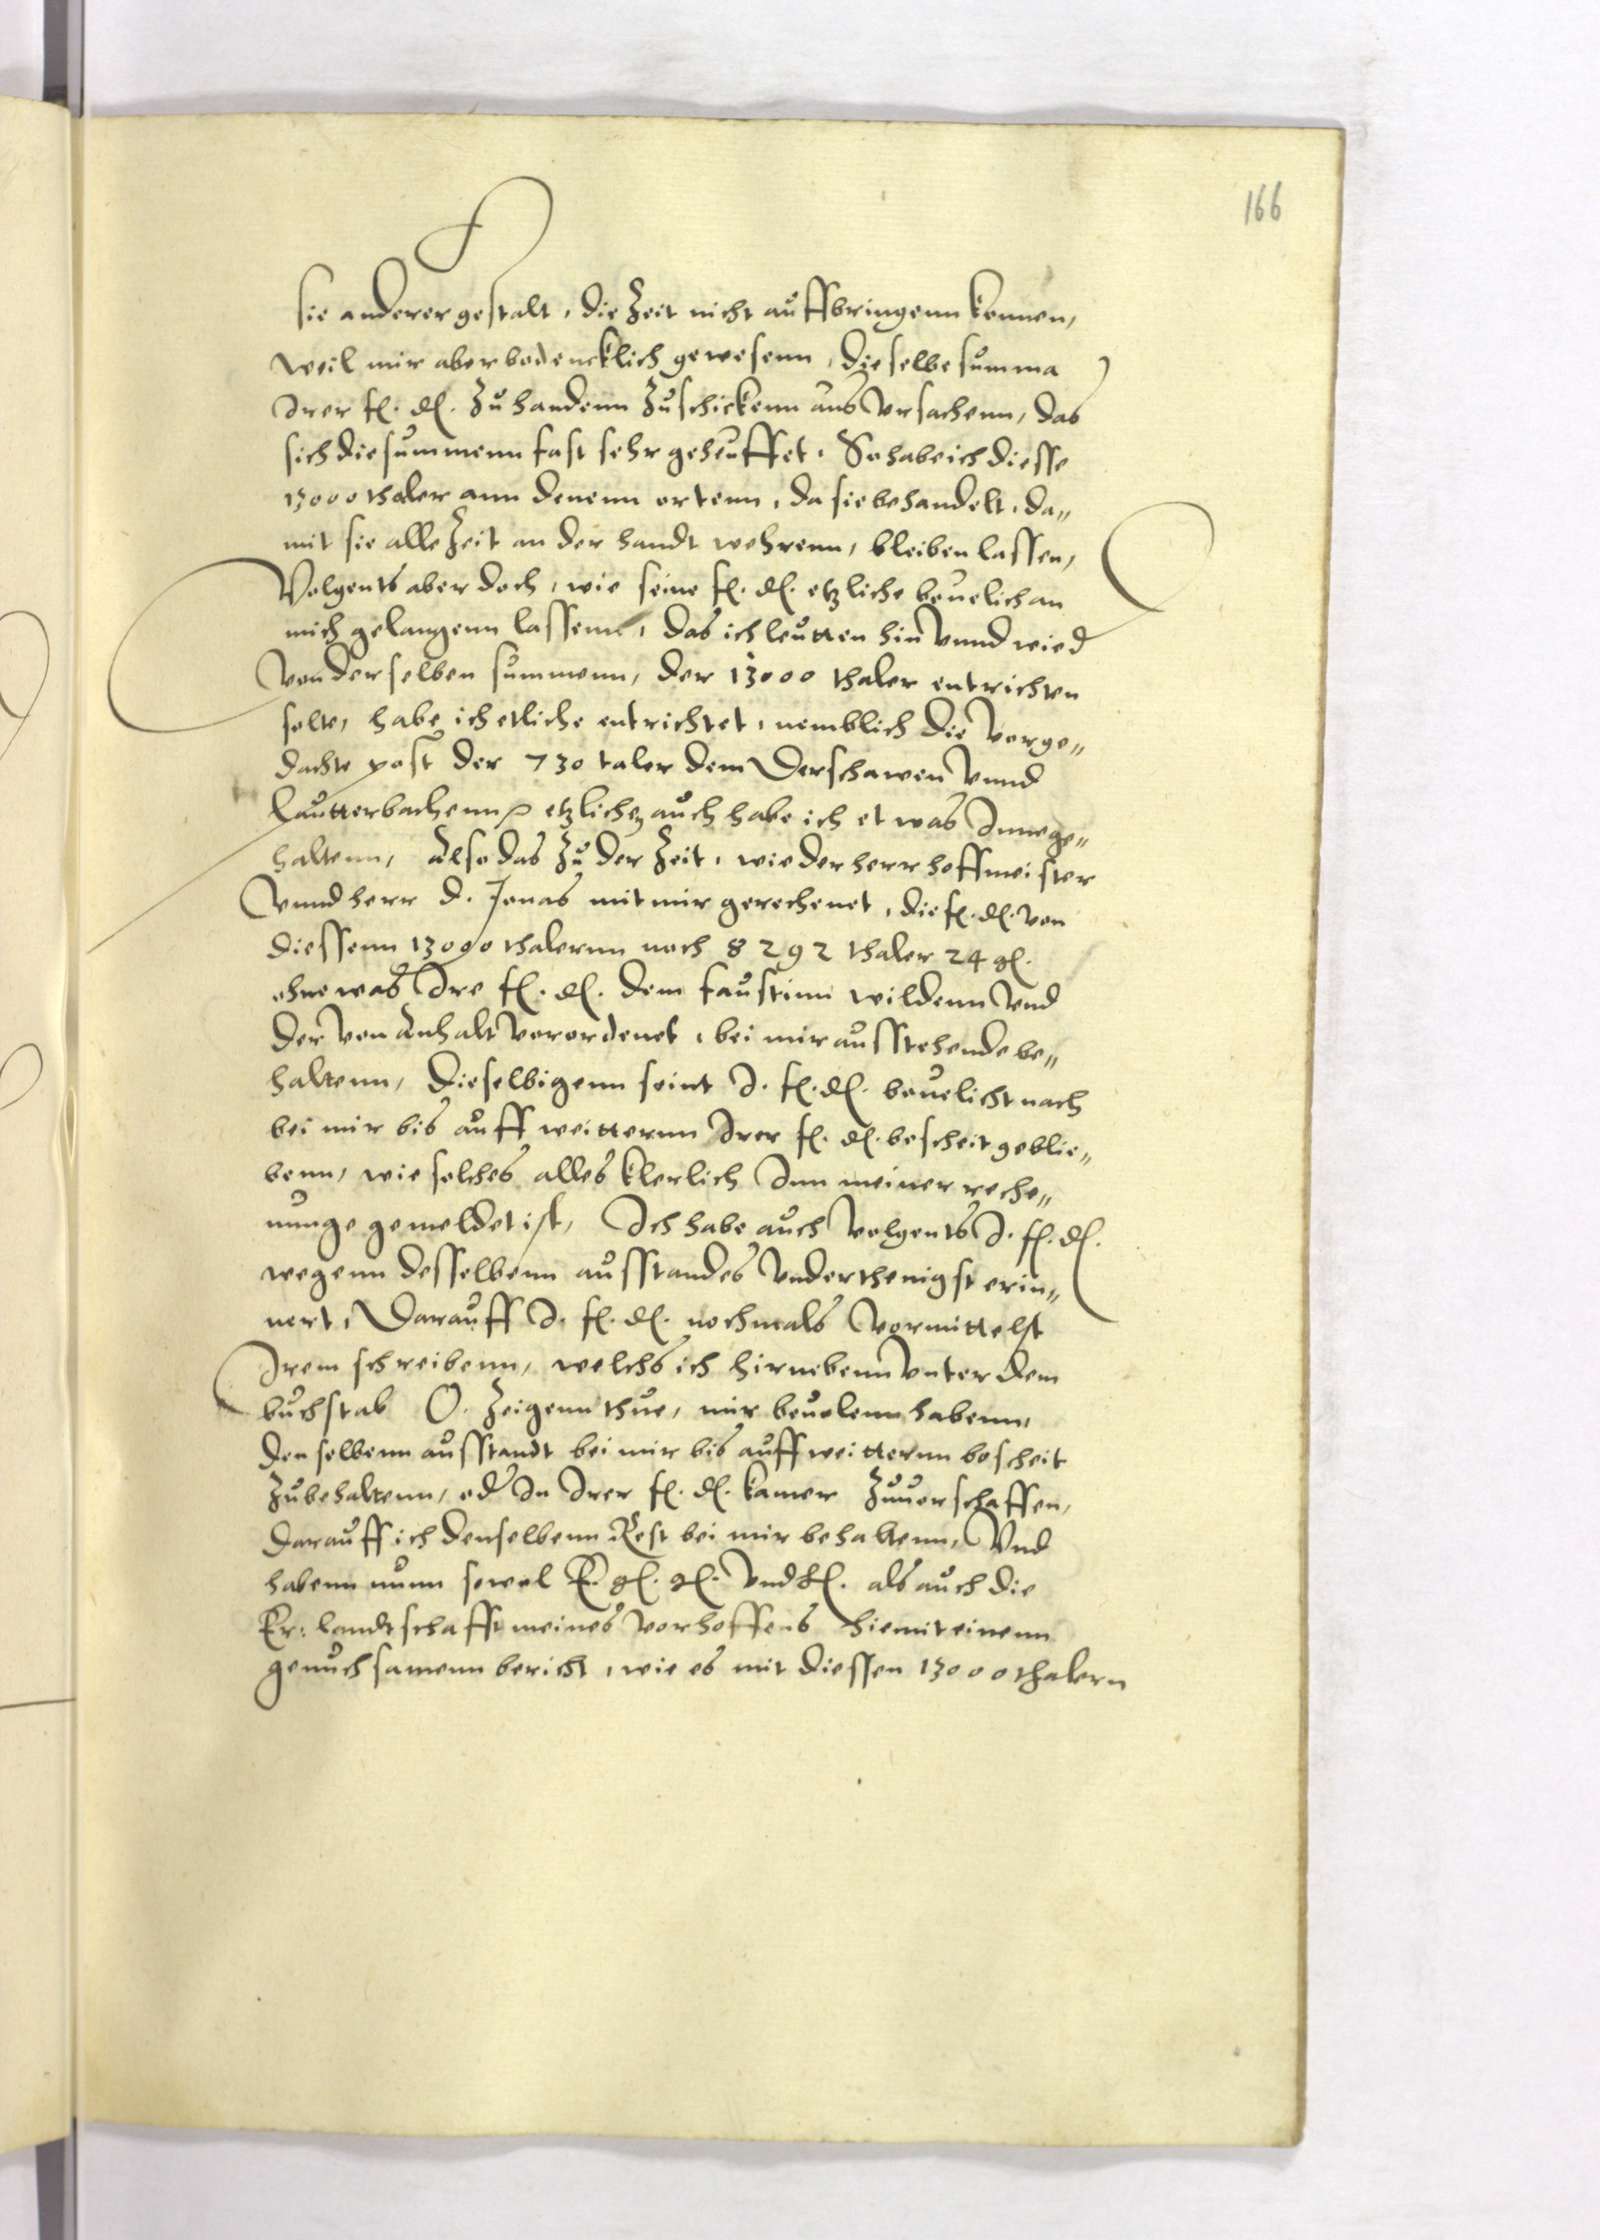 166
sie anderer gestalt, die Zeit nicht auffbringenn konnen,
weil mir aber bedencklich gewesenn, dieselbe summa
Irer fl. dl. Zu handenn Zuschickenn aus Vrsachenn, das
sich die summenn fast sehr geheuffet. So habe ich diesse
13000 thaler ann denenn ortenn, da sie behandelt, da„
mit sie alle Zeit an der handt wehrenn, bleiben lassen,
Volgents aber doch, wie seine fl. dl. etzliche beuelich an
mich gelangenn lassenn, das ich leutten hin Vnnd wied
Von derselben summenn, der 13000 thaler entrichten
solte, habe ich etliche entrichtet, nemblich die Vorge„
dachte post der 730 taler dem Derschawen Vnnd
Lautterbachenn etzliche auch habe ich etwas Inne ge„
haltenn, Also das Zu der Zeit, wie der herr hoffmeister
Vnnd herr D. Jonas mit mir gerechenet, die fl. dl. von
diessenn 13000 thalernn noch 8292 thaler 24 gl.
ohne was Ire fl. dl. dem faustinn wildenn Vnd
der Von Anhalt Verordenet, bei mir ausstehende be„
haltenn, dieselbigenn seint I. fl. dl. beuelicht nach
bei mir bis auff weitternn Irer fl. dl. bescheit geblie„
benn, wie solches alles klerlich Inn meiner reche„
nunge gemeldet ist, Ich habe auch Volgents I. fl. dl.
wegenn desselbenn ausstandes Vnderthenigst erin„
nert, Darauff I. fl. dl. nochmals Vormittelst
Irem schreibenn, welchs ich hirnebenn Vnter dem
buchstab O. Zeigenn thue, mir beuolenn habenn,
denselbenn ausstandt bei mir bis auff weitternn bescheit
Zubehaltenn, od In Irer fl. dl. kamer Zuuerschaffen,
darauff ich denselbenn Rest bei mir behaltenn, Vnd
habenn nunn sowol E. gl. gl. Vnd hl. als auch die
Er: landtschafft meines Vorhoffens hiemit einenn
genuchsamenn bericht, wie es mit diessen 13000 thalern